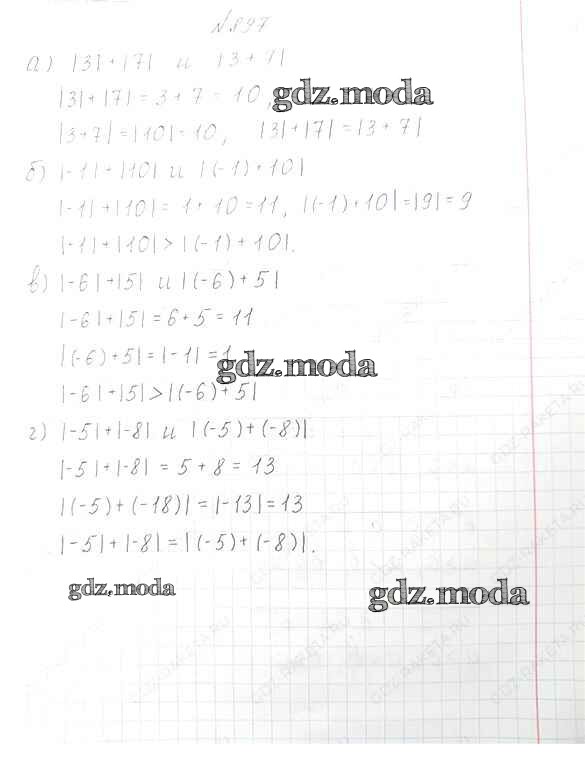 №897
а) |3|+|7| и |3+7|
|3|+|7|=3+7=10, gdz.moda
|3+7|=|10|=10, |3|+|7|=|3+7|
б) |-1|+|10| и |(-1)+10|
|-1|+|10|=1+10=11, |(-1)+10|=|9|=9
|-1|+|10|>|(-1)+10|.
в) |-6|+|5| и |(-6)+5|
|-6|+|5|=6+5=11
|(-6)+5|=|-1|=1 gdz.moda
|-6|+|5|>|(-6)+5|
г) |-5|+|-8| и |(-5)+(-8)|
|-5|+|-8|=5+8=13
|(-5)+(-18)|=|-13|=13
|-5|+|-8|=|(-5)+(-8)|.
gdz.moda gdz.moda
GDZ-RAKETA.RU GDZ-RAKETA.RU GDZ-RAKETA.RU GDZ-RAKETA.RU